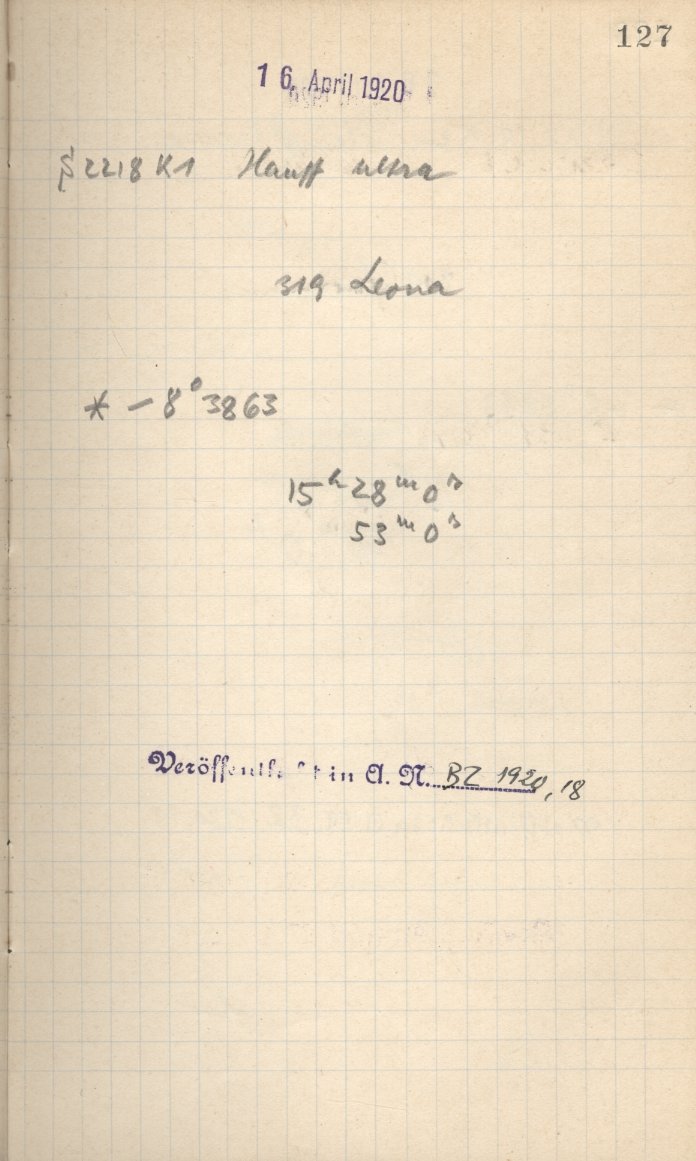 127
16. April 1920
2218 K1 Hauff ultra
319 Leona
* – 8° 3863
15ʰ 28ᵐ 0ˢ
53ᵐ 0ˢ
Veröffentlicht in A. N. BZ 1920, 18